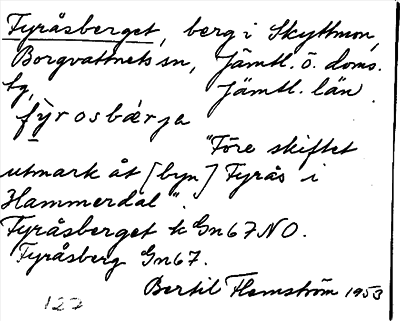 Fyråsberget, berg i Skyttmon,
Borgvattnets sn, Jämtl. ö. doms.
tg, Jämtl. län.
fỳrosbærja
"Före skiftet
utmark åt [byn] Fyrås i
Hammerdal".
Fyråsberget k Gn67NO.
Fyråsberg Gn67.
Bertil Flemström 1953
127